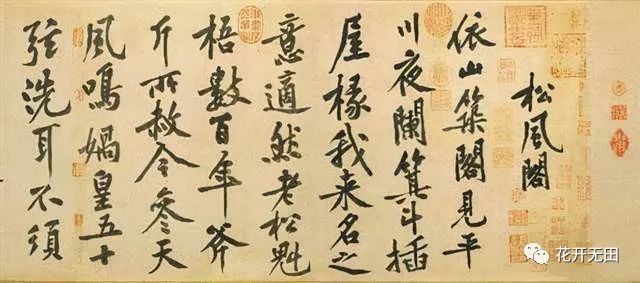 松風閣
依山築閣見平
川夜闌箕斗插
屋椽我来名之
意適然老松魁
梧數百年斧
斤所赦今參天
風鳴媧皇五十
弦洗耳不須
花开无田